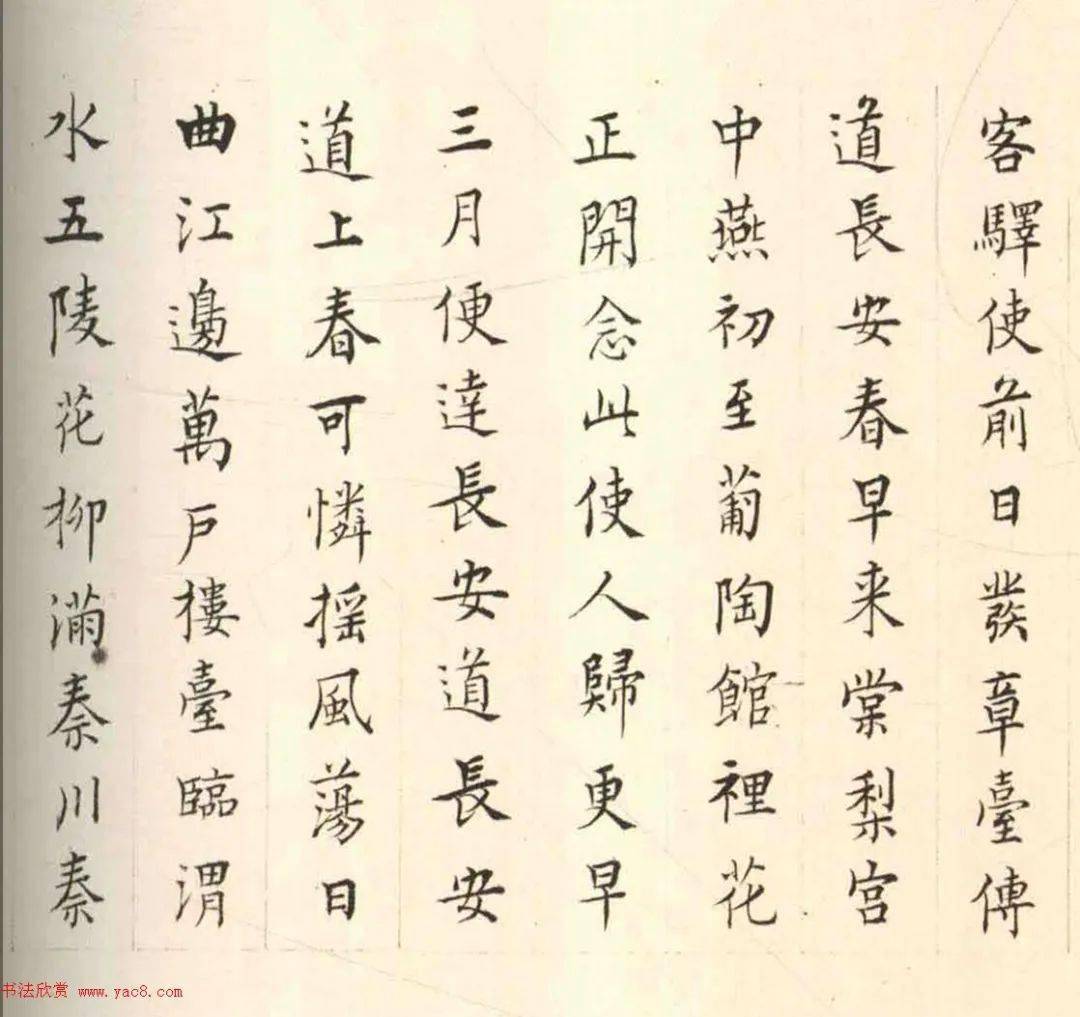 客驛使前日發章臺傳
道長安春早来棠梨宫
中燕初至葡陶館裡花
正開念此使人歸更早
三月便達長安道長安
道上春可憐揺風蕩日
曲江邊萬戶樓臺臨渭
水五陵花柳滿秦川秦
书法欣赏 www.yac8.com